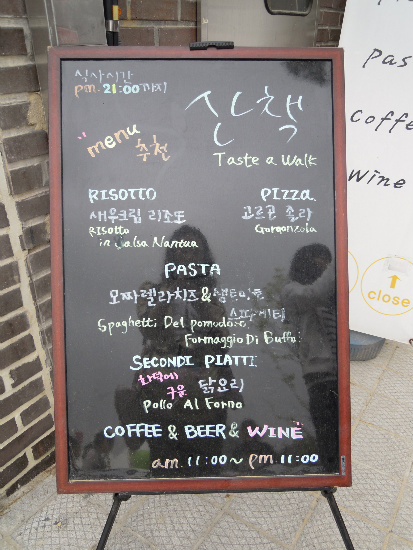 식사시간
pm. 21:00까지
산책
Taste a Walk
menu
추천
RISOTTO
새우크림 리조또
RISOTTO
in Salsa Nantua
PIZZA.
고르곤 졸라
Gorgonzola
PASTA
모짜렐라치즈 & 생토마토
스파게티
Spaghetti Del pomodoro
Formaggio Di Buffa
SECONDI PIATTI
화덕에
구운 닭요리
Pollo Al Forno
COFFEE & BEER & WINE
am. 11:00~ pm. 11:00
Pas
Coffe
Wine
close